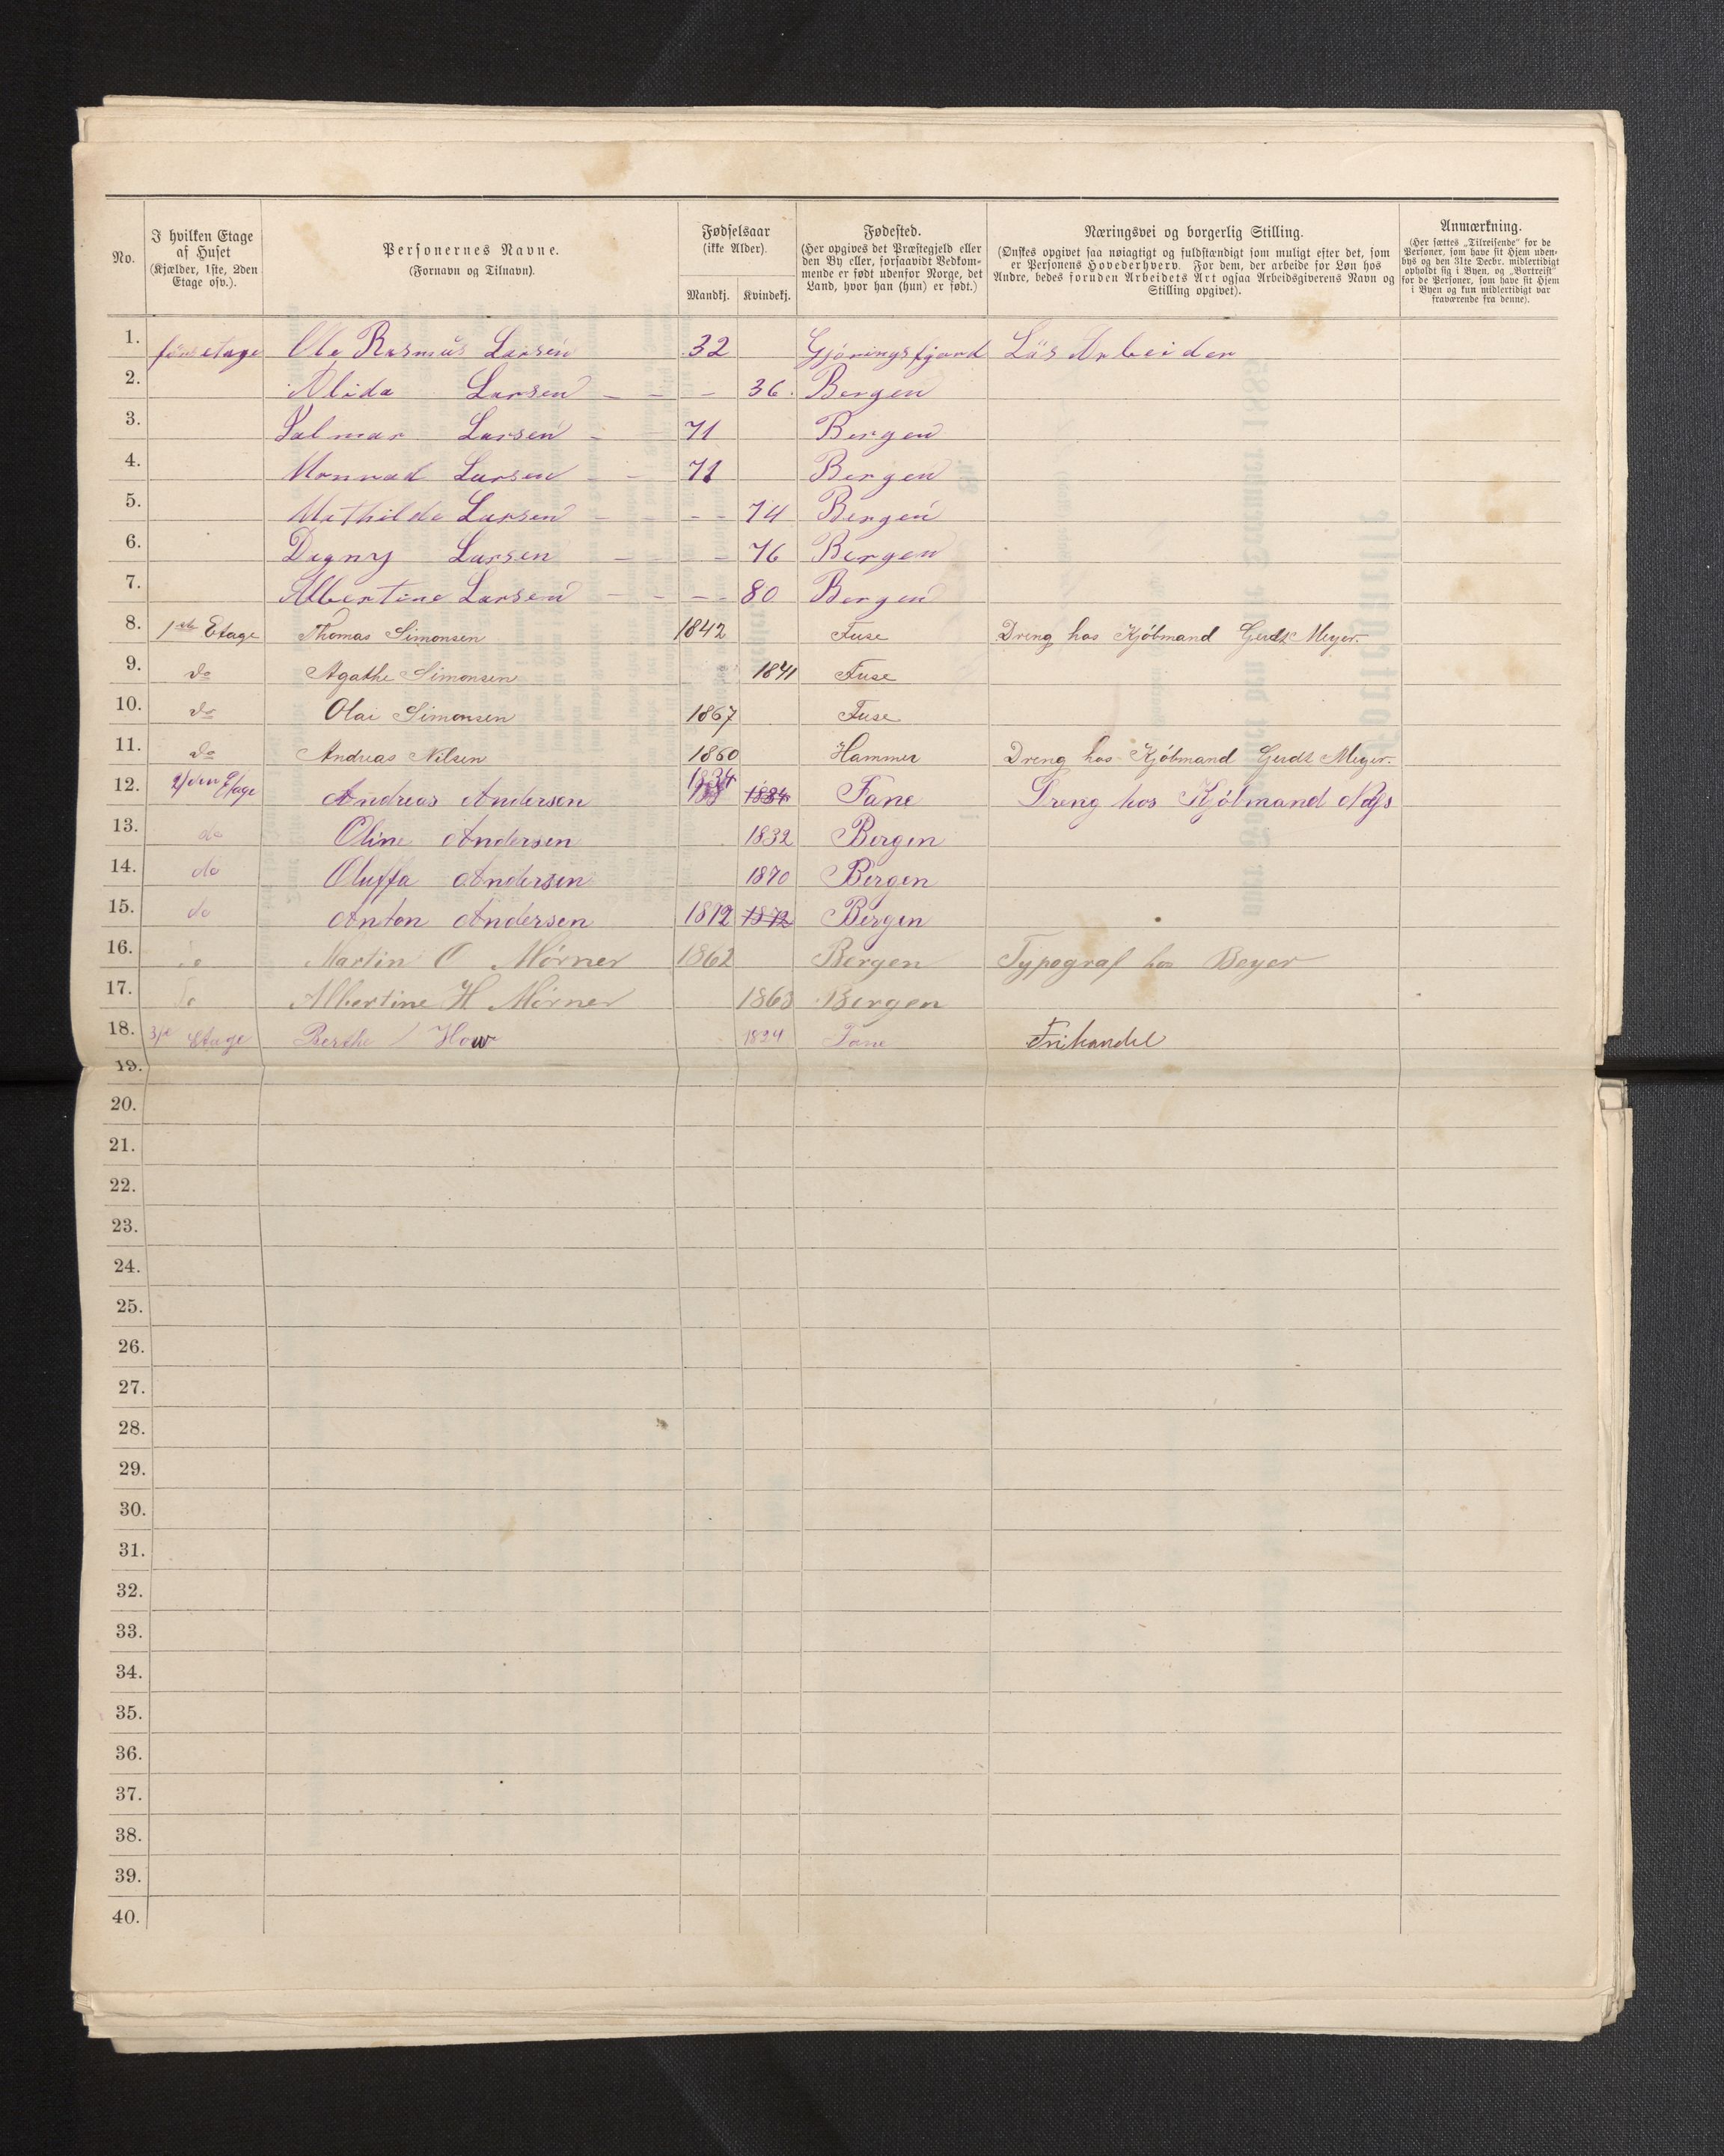 No.
I hvilken Etage af Huset (Kjælder, 1ste, 2den Etage osv.).
Personernes Navne. (Fornavn og Tilnavn).
Fødselsaar (ikke Alder).
Mandkj. Kvindekj.
Fødested. (Her opgives det Præstegjeld eller den By eller, forsaavidt Vedkommende er født udenfor Norge, det Land, hvor han (hun) er født.)
Næringsvei og borgerlig Stilling. (Ønskes opgivet saa nøiagtigt og fuldstændigt som muligt efter det, som er Personens Hovederhverv. For dem, der arbeide for Løn hos Andre, bedes foruden Arbeidets Art ogsaa Arbeidsgiverens Navn og Stilling opgivet).
Anmærkning. (Her sættes „Tilreisende" for de Personer, som have sit Hjem udenbys og den 31te Decbr. midlertidigt opholdt sig i Byen, og „Bortreist" for de Personer, som have sit Hjem i Byen og kun midlertidigt var fraværende fra denne).
1. etage Ole Rasmus Larsen 32 Gjöringsfjord Lös Arbeider
2. Alida Larsen - - - 36. Bergen
3. Valmar Larsen - 71 Bergen
4. Monrad Larsen - - 71 Bergen
5. Mathilde Larsen - - - - 74 Bergen
6. Dagny Larsen - - - 76 Bergen
7. Albertine Larsen - - - - 80 Bergen
8. 1ste Etage Thomas Simonsen 1842 Fuse Dreng hos Kjøbmand Gerdt Meyer.
9. do Agathe Simonsen 1841 Fuse
10. do Olai Simonsen 1867 Fuse
11. do Andreas Nilsen 1860 Hammer Dreng hos Kjøbmand Gerdt Meyer.
12. 2den Etage Andreas Andersen 1834 1834 Fane Dreng hos Kjøbmand
13. do Oline Andersen 1832 Bergen
14. do Oluffa Andersen 1870 Bergen
15. do Anton Andersen 1872 1872 Bergen
16. do Martin O Mørner 1862 Bergen Typograf hos Beyer
17. do Albertine H Mørner 1863 Bergen
18. 3je Etage Berthe How 1834 Fane Frihandel
19.
20.
21.
22.
23.
24.
25.
26.
27.
28.
29.
30.
31.
32.
33.
34.
35.
36.
37.
38.
39.
40.